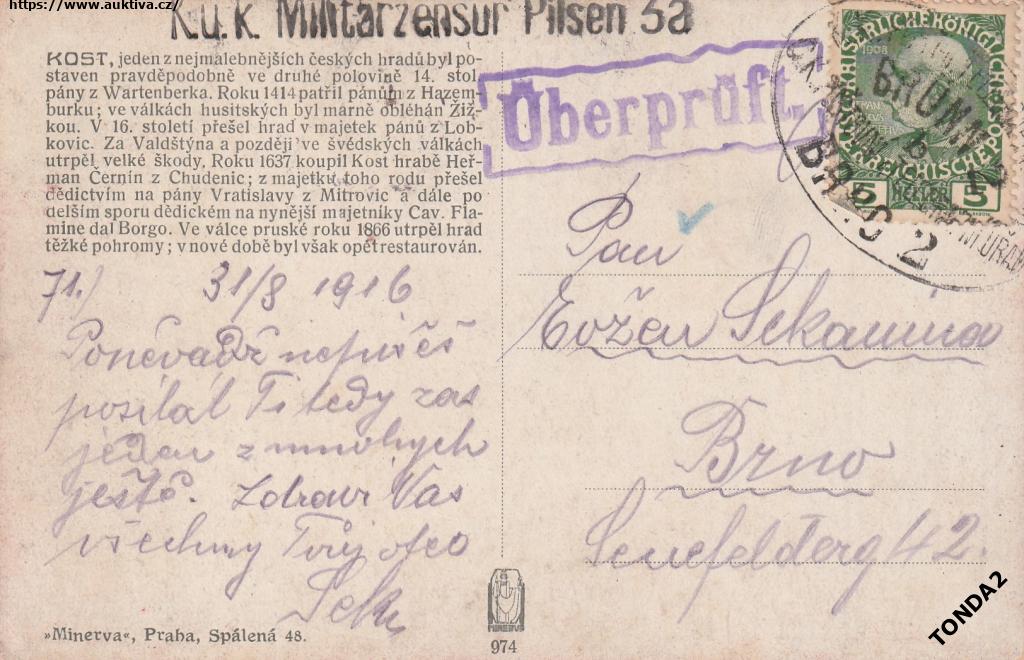 https://www.auktiva.cz/
K.u.k. Militärzensur Pilsen 3a
Überprüft
KOST, jeden z nejmalebnějších českých hradů byl po-
staven pravděpodobně ve druhé polovině 14. stol.
pány z Wartenberka. Roku 1414 patřil pánům z Hazem-
burku; ve válkách husitských byl marně obléhán Žiž-
kou. V 16. století přešel hrad v majetek pánů z Lob-
kovic. Za Valdštýna a později ve švédských válkách
utrpěl velké škody. Roku 1637 koupil Kost hrabě Heř-
man Černín z Chudenic; z majetku toho rodu přešel
dědictvím na pány Vratislavy z Mitrovic a dále po
delším sporu dědickém na nynější majetníky Cav. Fla-
mine dal Borgo. Ve válce pruské roku 1866 utrpěl hrad
těžké pohromy; v nové době byl však opět restaurován.
71.) 31/8 1916
Poněvadž nejvíc
posílal Ti tedy zas
jeden z mnohých
ještě. Zdraví Vás
všechny Tvůj otec
»Minerva«, Praha, Spálená 48.
MINERVA
974
1908
BRÜNN
BRNO 2
5 HELLER 5
Pan
Evžen Sekanina
Brno
Senefelderg 42.
TONDA2